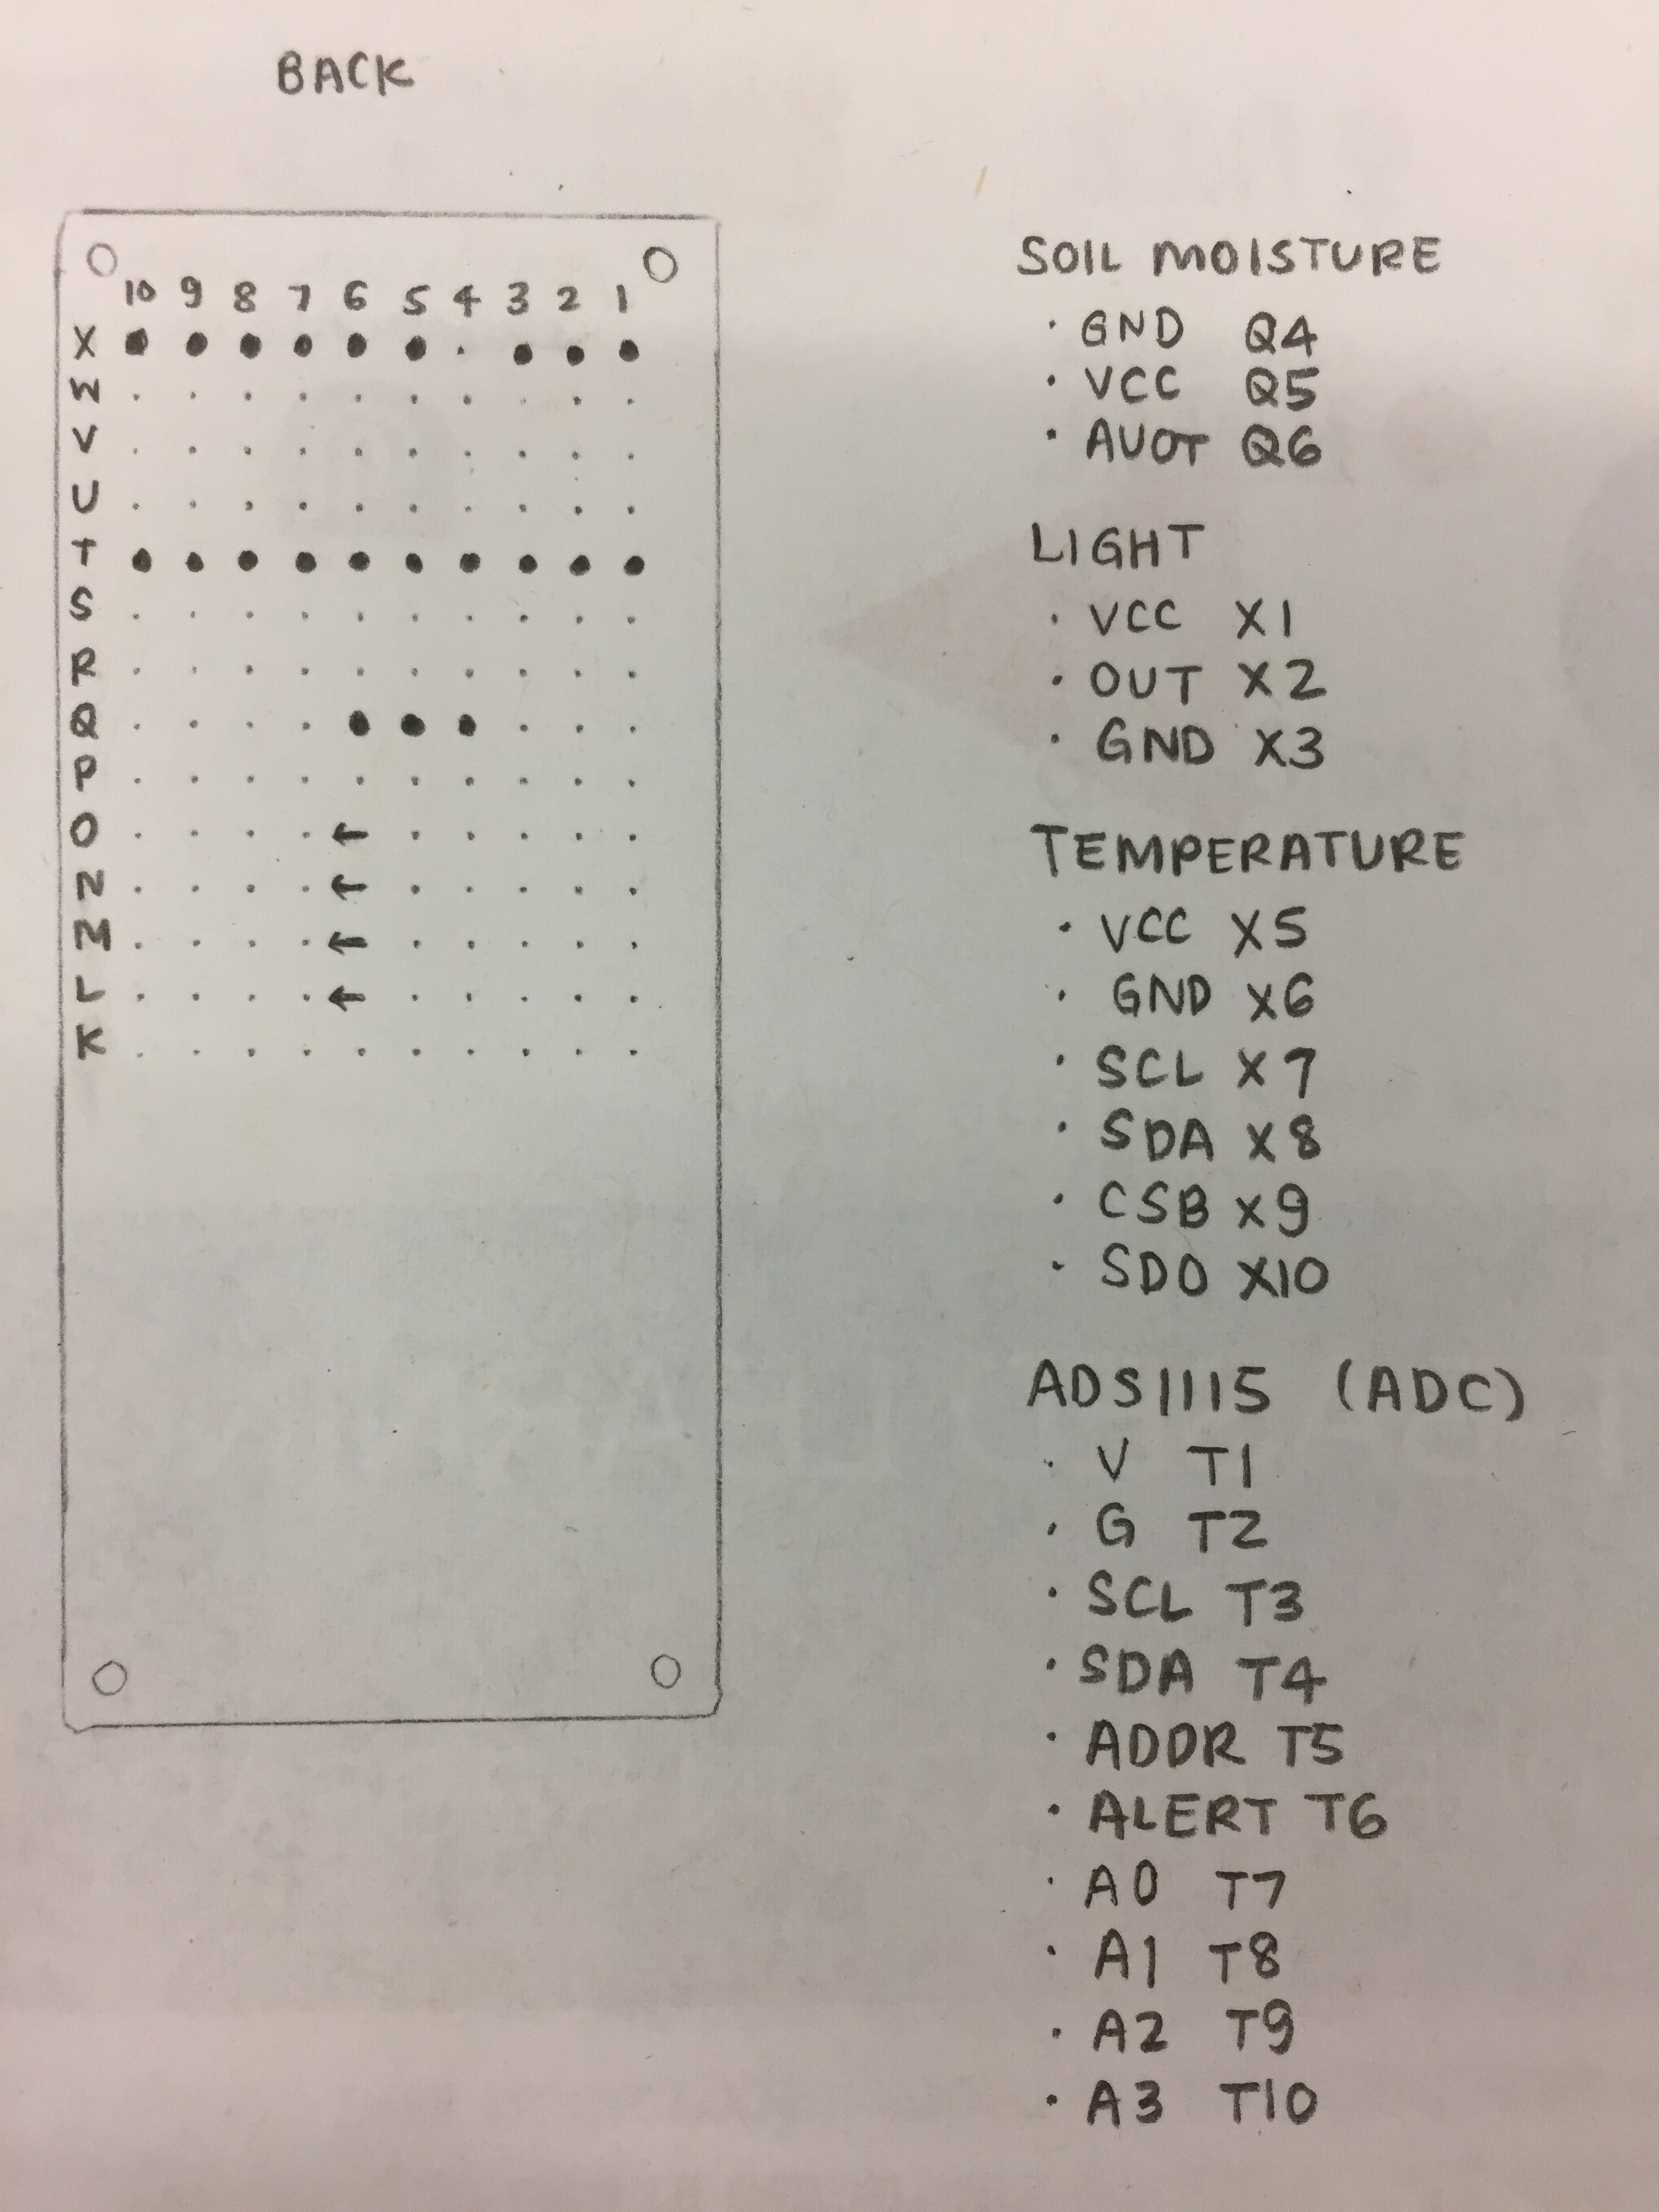 BACK
10 9 8 7 6 5 4 3 2 1
X
W
V
U
T
S
R
Q
P
O
N
M
L
K
SOIL MOISTURE
· GND Q4
· VCC Q5
· AUOT Q6
LIGHT
· VCC X1
· OUT X2
· GND X3
TEMPERATURE
· VCC X5
· GND X6
· SCL X7
· SDA X8
· CSB X9
· SDO X10
ADS1115 (ADC)
· V T1
· G T2
· SCL T3
· SDA T4
· ADDR T5
· ALERT T6
· A0 T7
· A1 T8
· A2 T9
· A3 T10